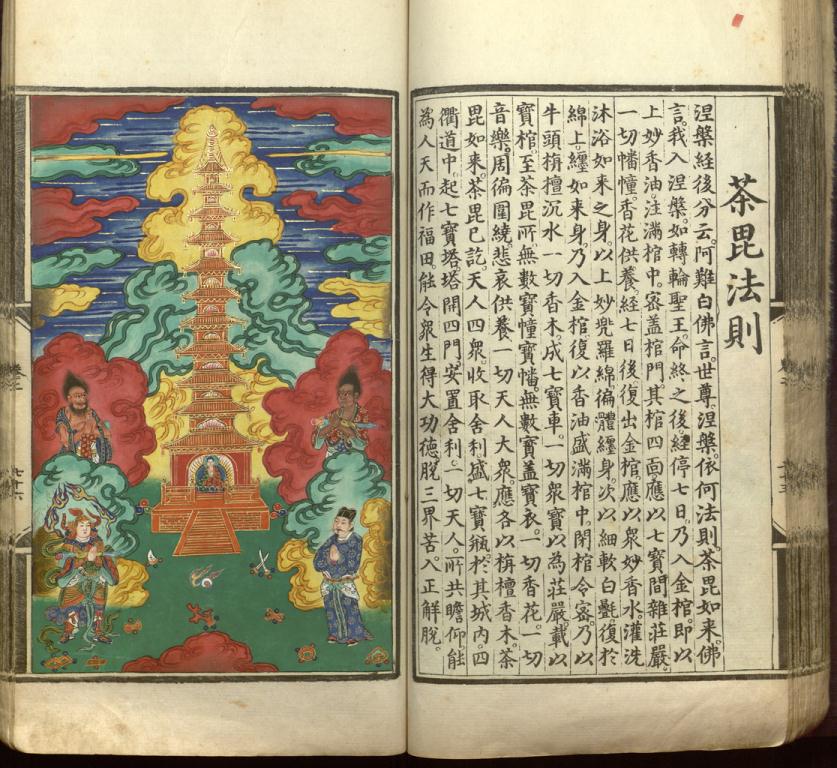 荼毘法則
涅槃經後分云。阿難白佛言。世尊。涅槃。依何法則。荼毘如來。佛
言。我入涅槃。如轉輪聖王。命終之後。經停七日。乃入金棺。即以
上妙香油。注滿棺中。密蓋棺門。其棺四面。應以七寶間雜莊嚴。
一切幡幢。香花供養。經七日後。復出金棺。應以眾妙香水。灌洗
沐浴如來之身。以上妙兜羅綿。徧體纏身。次以細軟白㲲。復於
綿上。纏如來身。乃入金棺。復以香油盛滿棺中。閉棺令密。乃以
牛頭栴檀沉水。一切香木。成七寶車。一切眾寶以為莊嚴。載以
寶棺。至荼毘所。無數寶幢寶幡。無數寶蓋寶衣。一切香花。一切
音樂。周徧圍繞。悲哀供養。一切天人大眾。應各以栴檀香木。荼
毘如來。荼毘已訖。天人四眾。收取舍利。盛七寶瓶。於其城內。四
衢道中。起七寶塔。塔開四門。安置舍利。一切天人。所共瞻仰。能
為人天而作福田。能令眾生得大功德。脫三界苦。入正解脫。